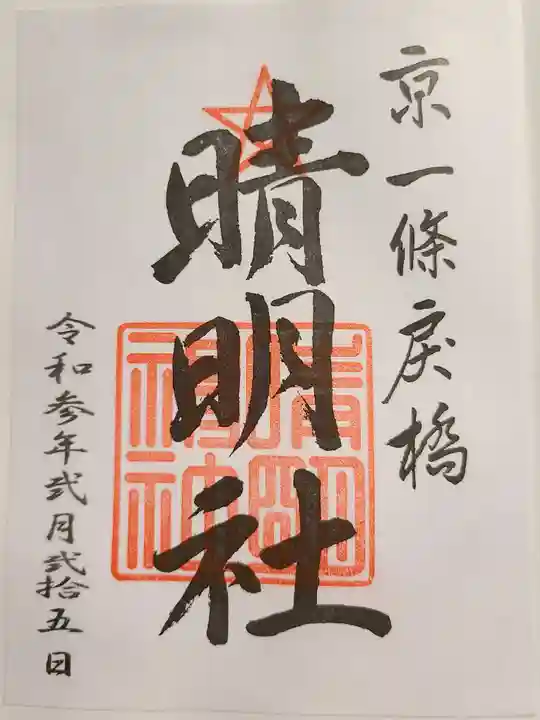 京一條戻橋
晴明社
晴明
神社
令和参年弐月弐拾五日